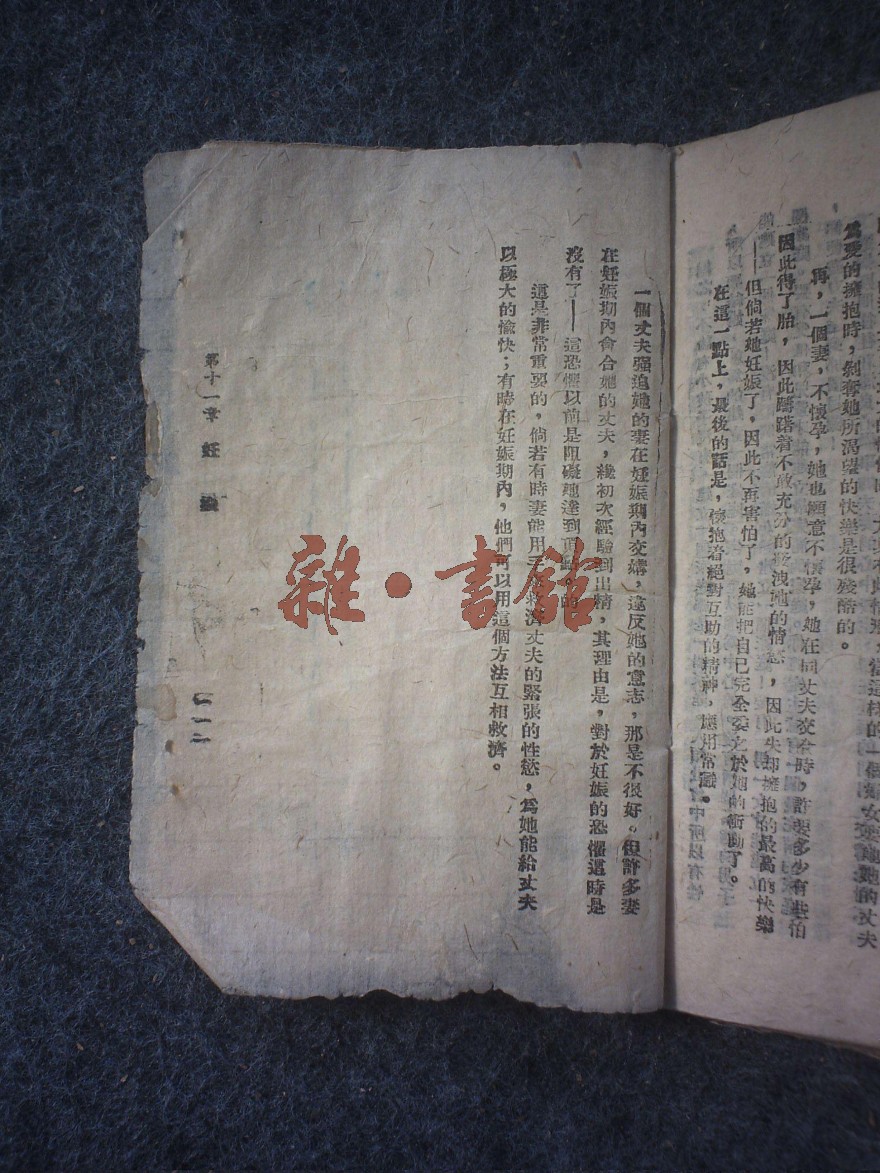 爲愛的擁抱時，剝奪她所渴望的快樂是很殘酷的。
再，一個妻，不懷孕，她也願意不懷孕，她在同丈夫交合時，許要多少有些怕
因此得了胎，因此躊躇着不敢充分的發洩她的情感，因此失却擁抱的最高的快樂
——但倘若她妊娠了，因此不再害怕了，她能把自己完全委之於她的衝動了。
在這一點上，最後的話是，懷抱着絕對互助的精神，應用常識。
一個丈夫强迫她的妻在妊娠期內交媾，違反她的意志，那是不很好。但許多妻
在妊娠期內會合她的丈夫，纔初次經驗到出精，其理由是，對於妊娠的恐懼這時是
沒有了——這恐懼以前是阻礙她達到頂點的。
這是非常重要的，倘若有時妻能用手來救濟丈夫的緊張的性慾，爲她能給丈夫
以極大的愉快；有時在妊娠期內，他們可以用這個方法互相救濟。
第十一章 妊娠
一一二
雜·書館